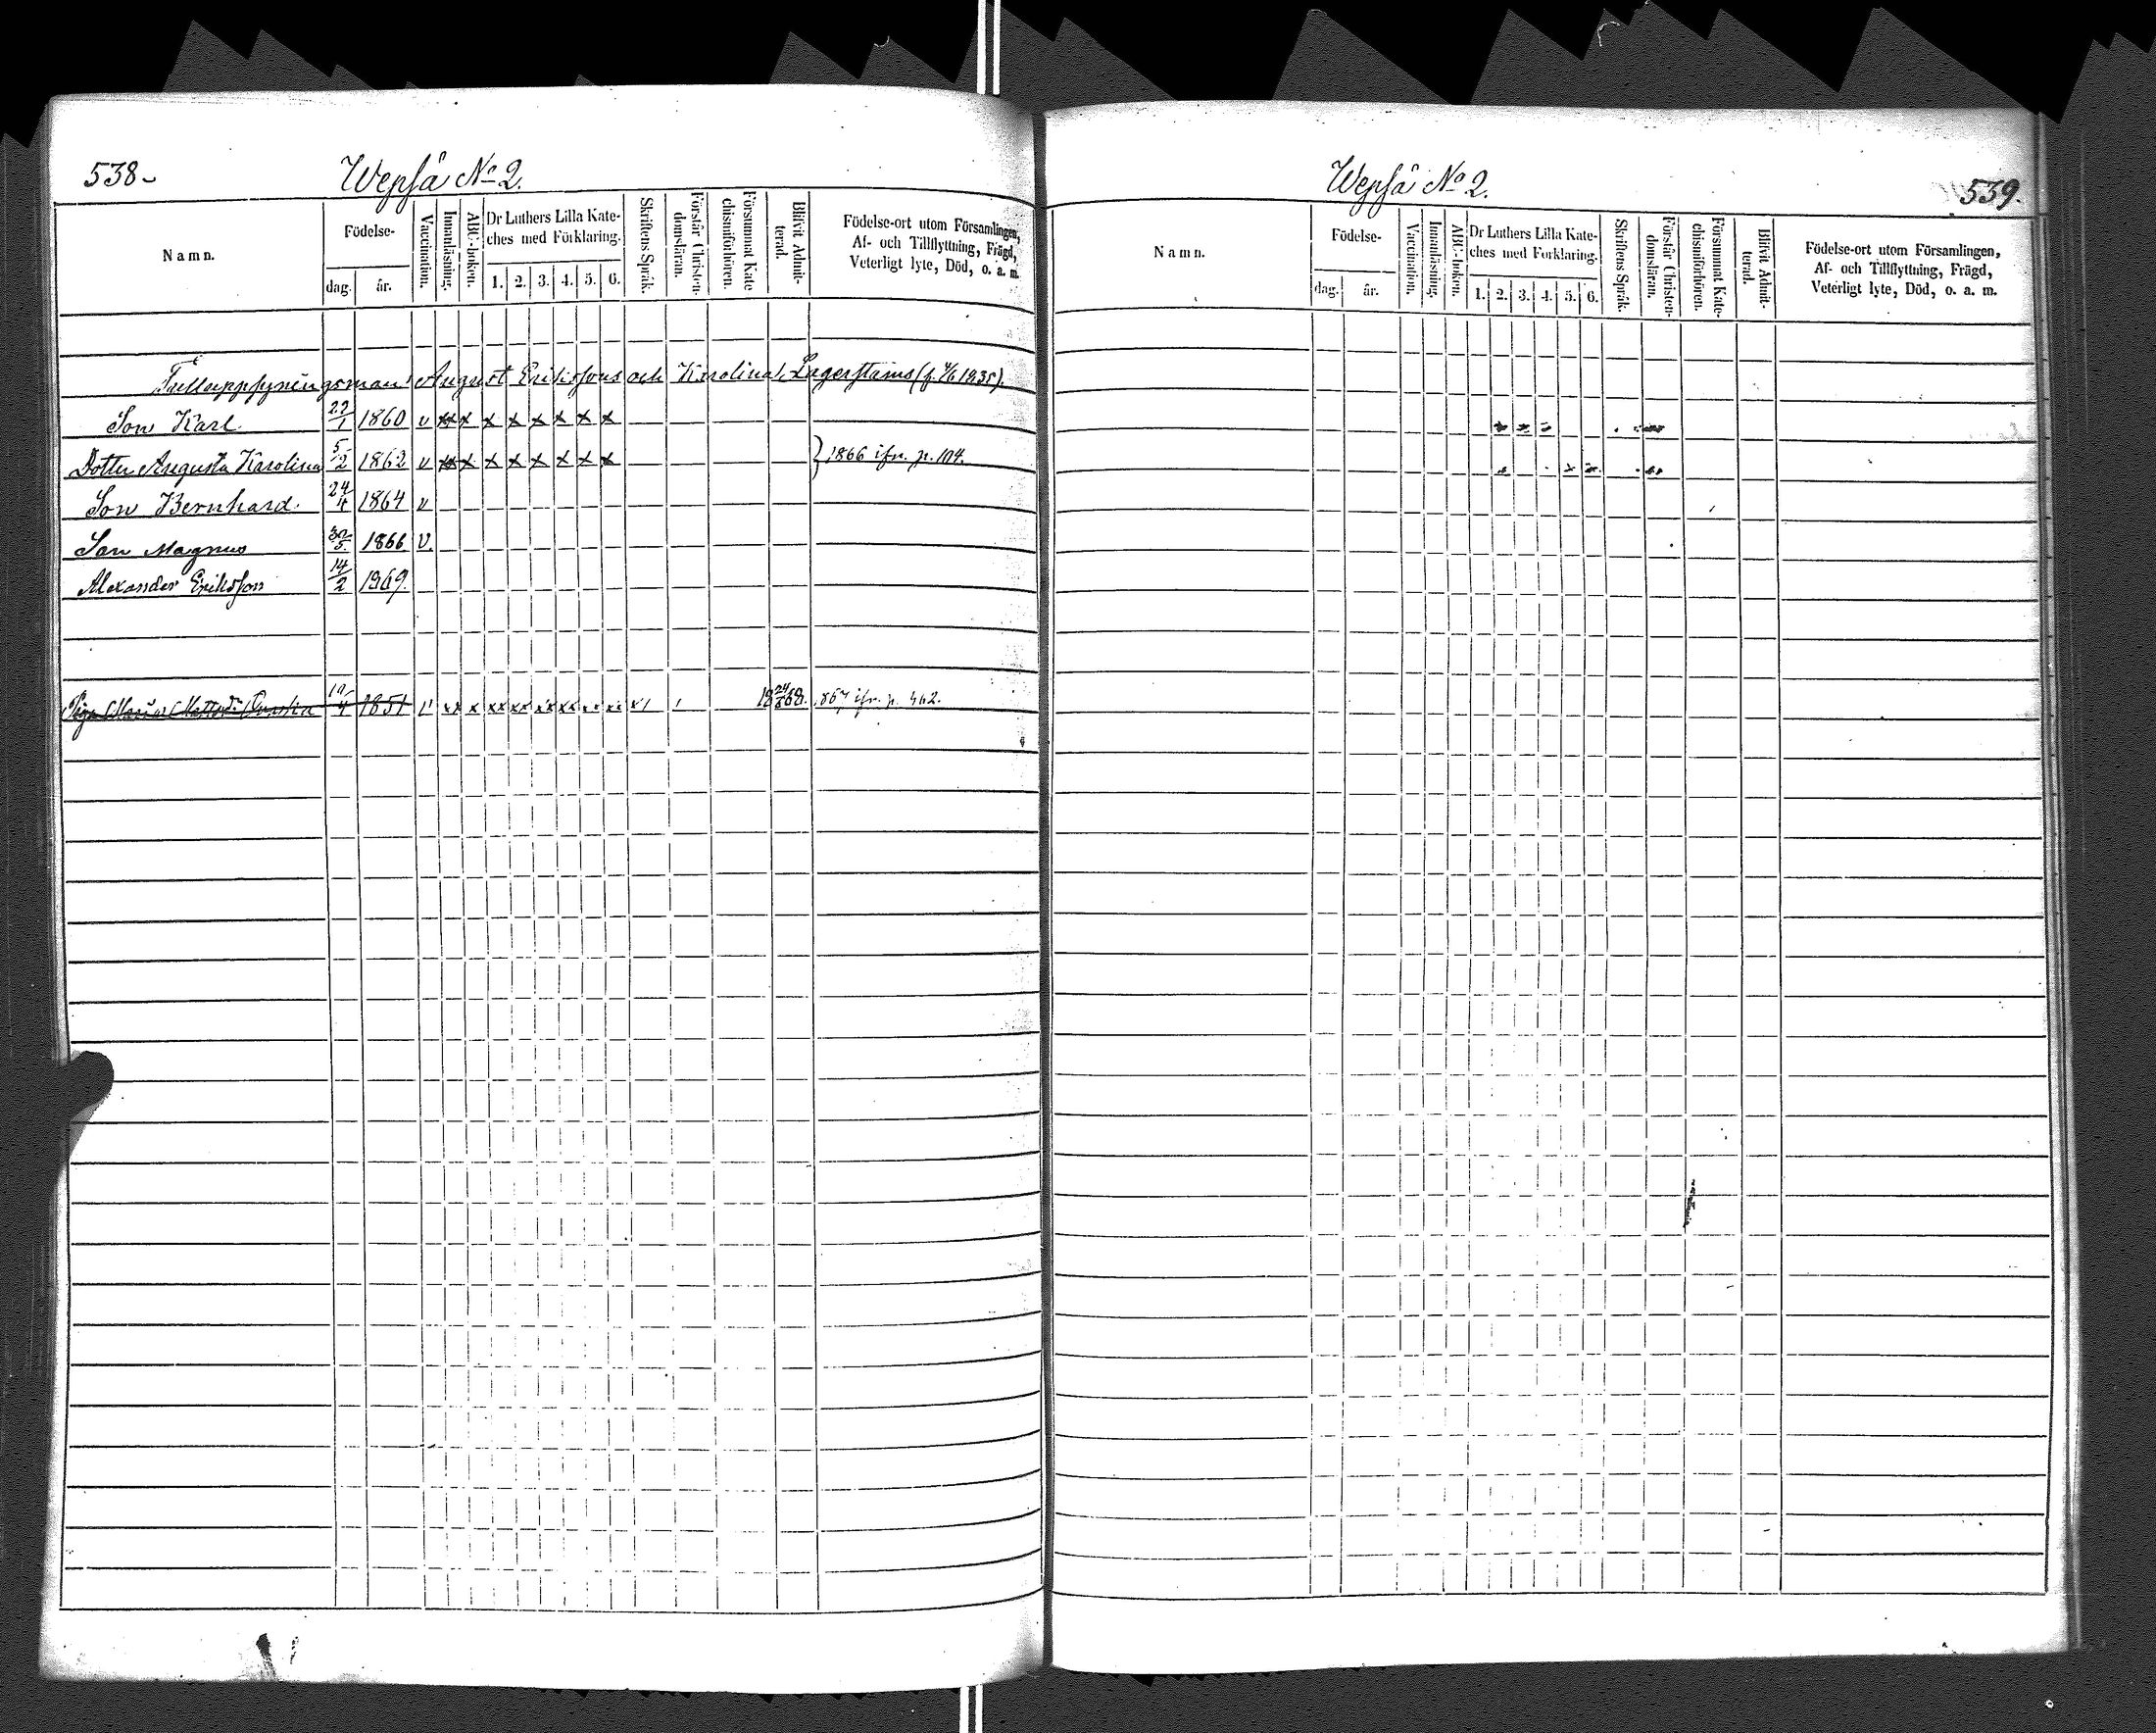 538.
Wepsä No 2.
Namn.
Födelse-
dag.
år.
Vaccination.
Innanläsning.
ABC-boken.
Dr Luthers Lilla Kate-
ches med Förklaring.
1. 2. 3. 4. 5. 6.
Skriftens Språk.
Förstår Christen-
domsläran.
Försummat Kate
chismiförhören.
Blifvit Admit-
terad.
Födelse-ort utom Församlingen,
Af- och Tillflyttning, Frägd,
Veterligt lyte, Död, o. a. m.
Tulluppsyningsman August Erikssons och Karolina Lagerstams
Son Karl 22/1 1860 v xx x x x x x x x
Dotter Augusta Karolina 5/2 1862 v xx x x x x x x x } 1866 ifr. p. 104.
Son Bernhard. 24/4 1864 v
Son Magnus 30/5 1866 v.
Alexander Eriksson 14/2 1969.
Piga Maria 4 1851 v xx x xx xx xx xx xx xx 1868. 867 ifr. p. 462.
Wepsä No 2.
539.
Namn.
Födelse-
dag.
år.
Vaccination.
Innanläsning.
ABC-boken.
Dr Luthers Lilla Kate-
ches med Förklaring.
1. 2. 3. 4. 5. 6.
Skriftens Språk.
Förstår Christen-
domsläran.
Försummat Kate-
chismiförhören.
Blifvit Admit-
terad.
Födelse-ort utom Församlingen,
Af- och Tillflyttning, Frägd,
Veterligt lyte, Död, o. a. m.